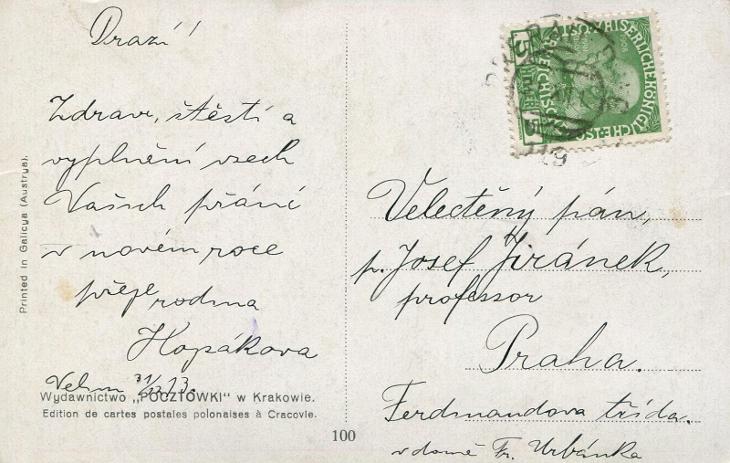 Drazí!
Zdraví, štěstí a
vyplnění všech
Vašich přání
v novém roce
přeje rodina
Hopákova
31/12 13.
Printed in Galicya (Austrya).
Wydawnictwo „POCZTÓWKI" w Krakowie.
Edition de cartes postales polonaises à Cracovie.
100
5
5
Velectěný pán,
p. Josef Jiránek,
professor
Praha.
Ferdinandova třída.
v domě Fr. Urbánka